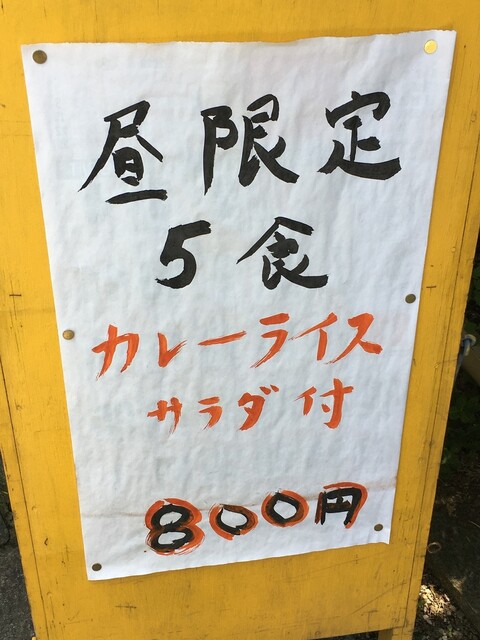 昼限定
5食
カレーライス
サラダ付
800円